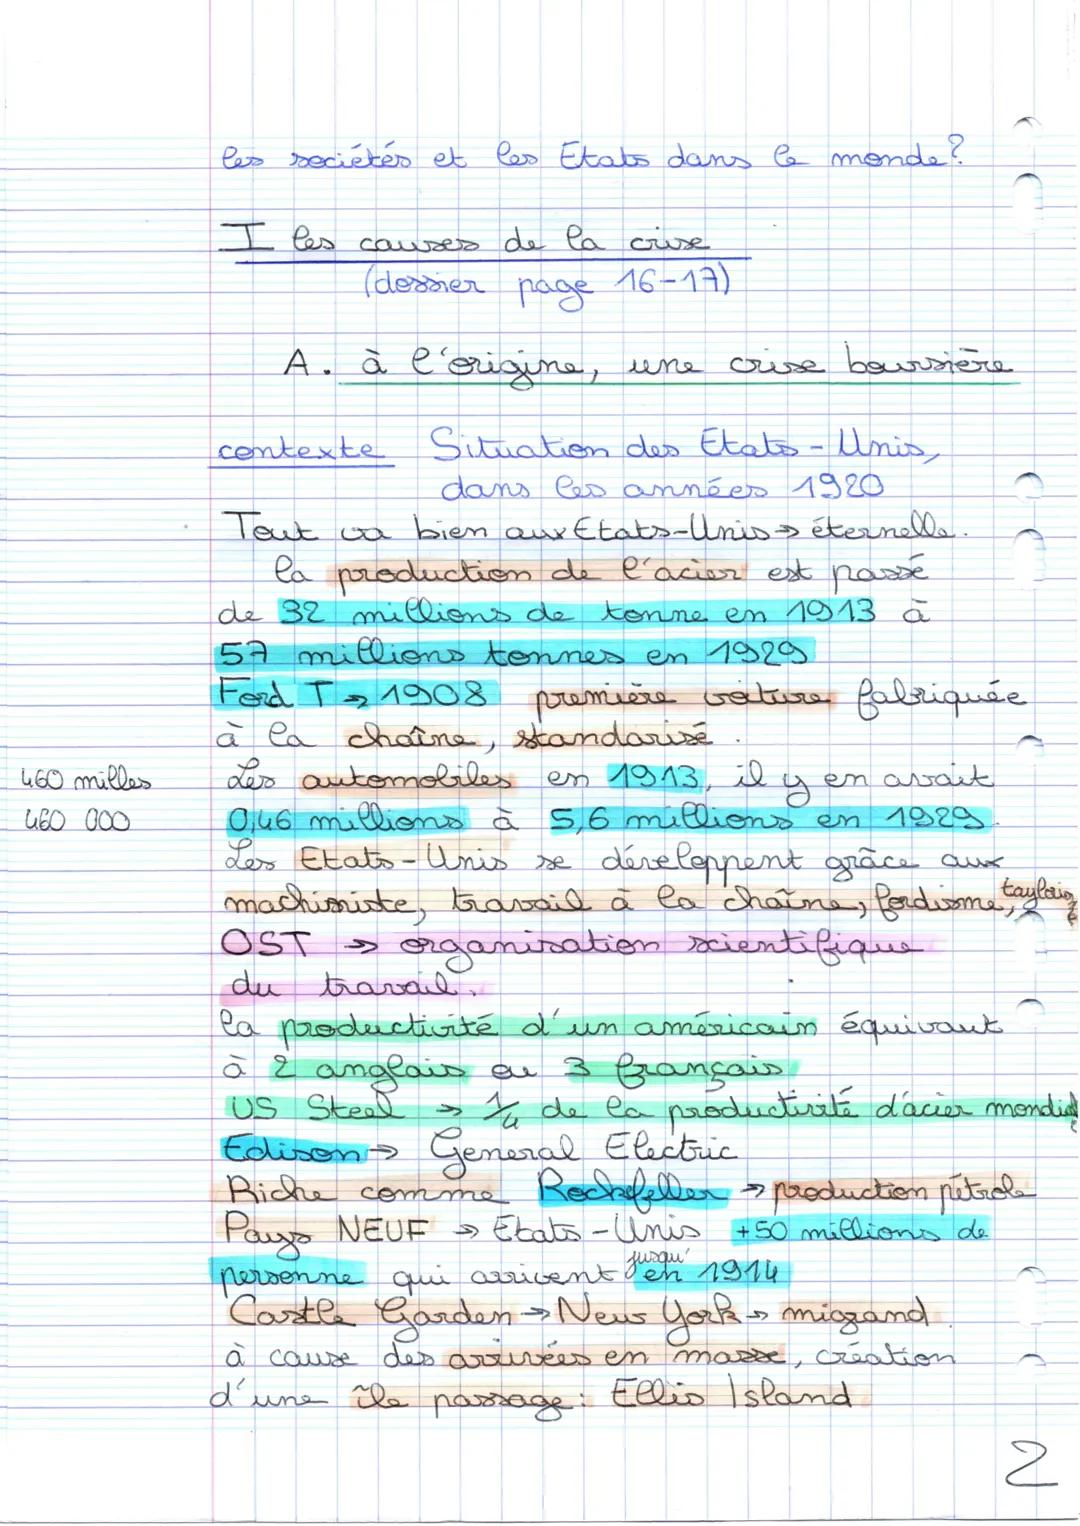 les sociétés et les Etats dans le monde?
I les causes de la crise
(dossier page 16-17)
A. à l'origine, une crise boursière
contexte Situation des Etats-Unis,
dans les années 1920
Tout va bien aux Etats-Unis → éternelle.
la production de l'acier est passé
de 32 millions de tonne en 1913 à
57 millions tonnes en 1929
Ford T → 1908 première voiture fabriquée
à la chaîne, standarisé.
460 milles
460 000
Les automobiles en 1913, il y en avait
0,46 millions à 5,6 millions en 1929.
Les Etats-Unis se développent grâce aux
machiniste, travail à la chaîne, fordisme,
OST → organisation scientifique
du travail.
la productivité d'un américain équivaut
à 2 anglais ou 3 français
US Steel → 1/4 de la productivité d'acier mondial
Edison → General Electric
Riche comme Rockefeller → production pétrole
Pays NEUF → Etats-Unis +50 millions de
personne qui arrivent jusqu' en 1914
Castle Garden → New York → migrand.
à cause des arrivées en masse, création
d'une île passage: Ellis Island
2